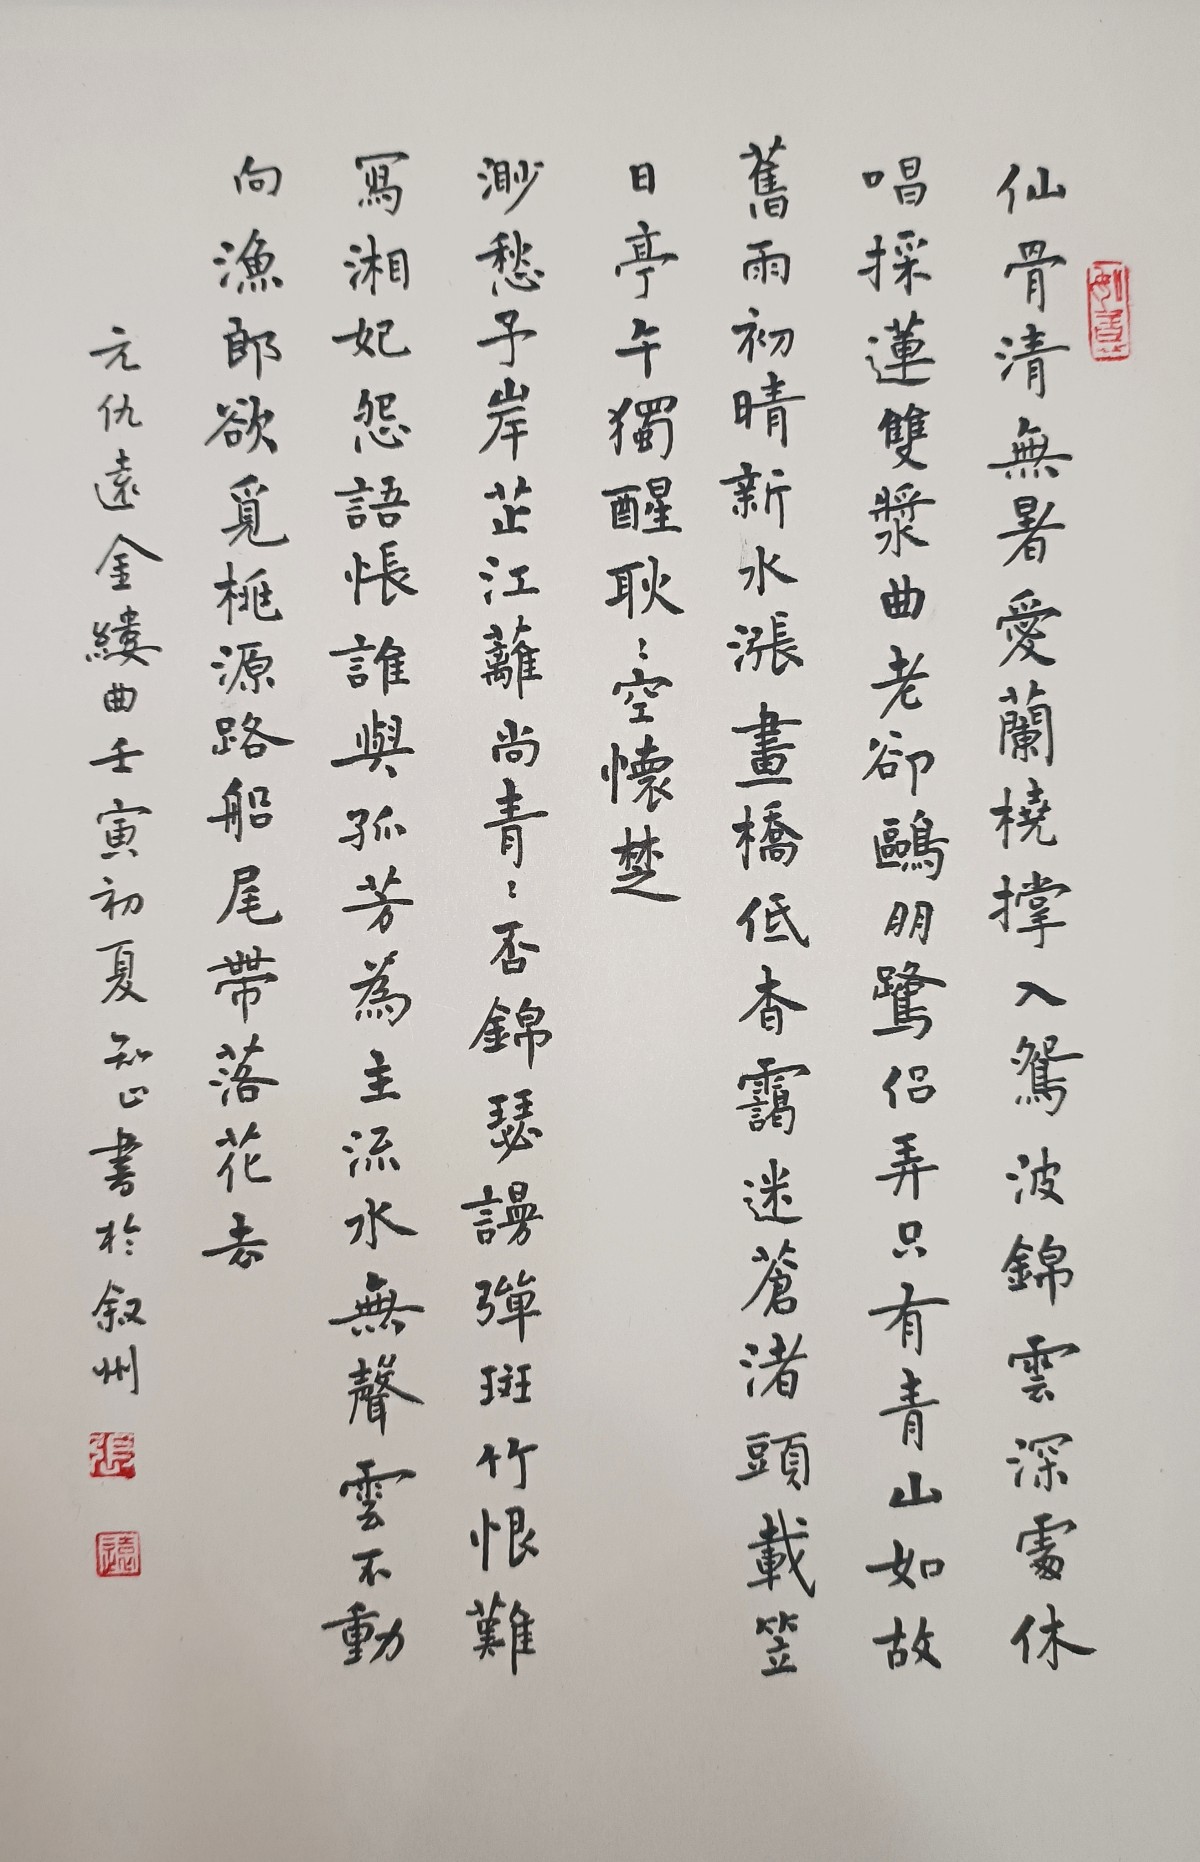 仙骨清無暑愛蘭橈撑入鴛波錦雲深處休
唱採蓮雙槳曲老卻鷗朋鷺侣弄只有青山如故
舊雨初晴新水漲畫橋低杳靄迷蒼渚頭載笠
日亭午獨醒耿〻空懷楚
渺愁予岸芷江蘺尚青〻否錦瑟謾彈斑竹恨難
寫湘妃怨語悵誰與孤芳為主流水無聲雲不動
向漁郎欲覓桃源路船尾帶落花去
元仇遠金縷曲壬寅初夏知止書於叙州
張
遠